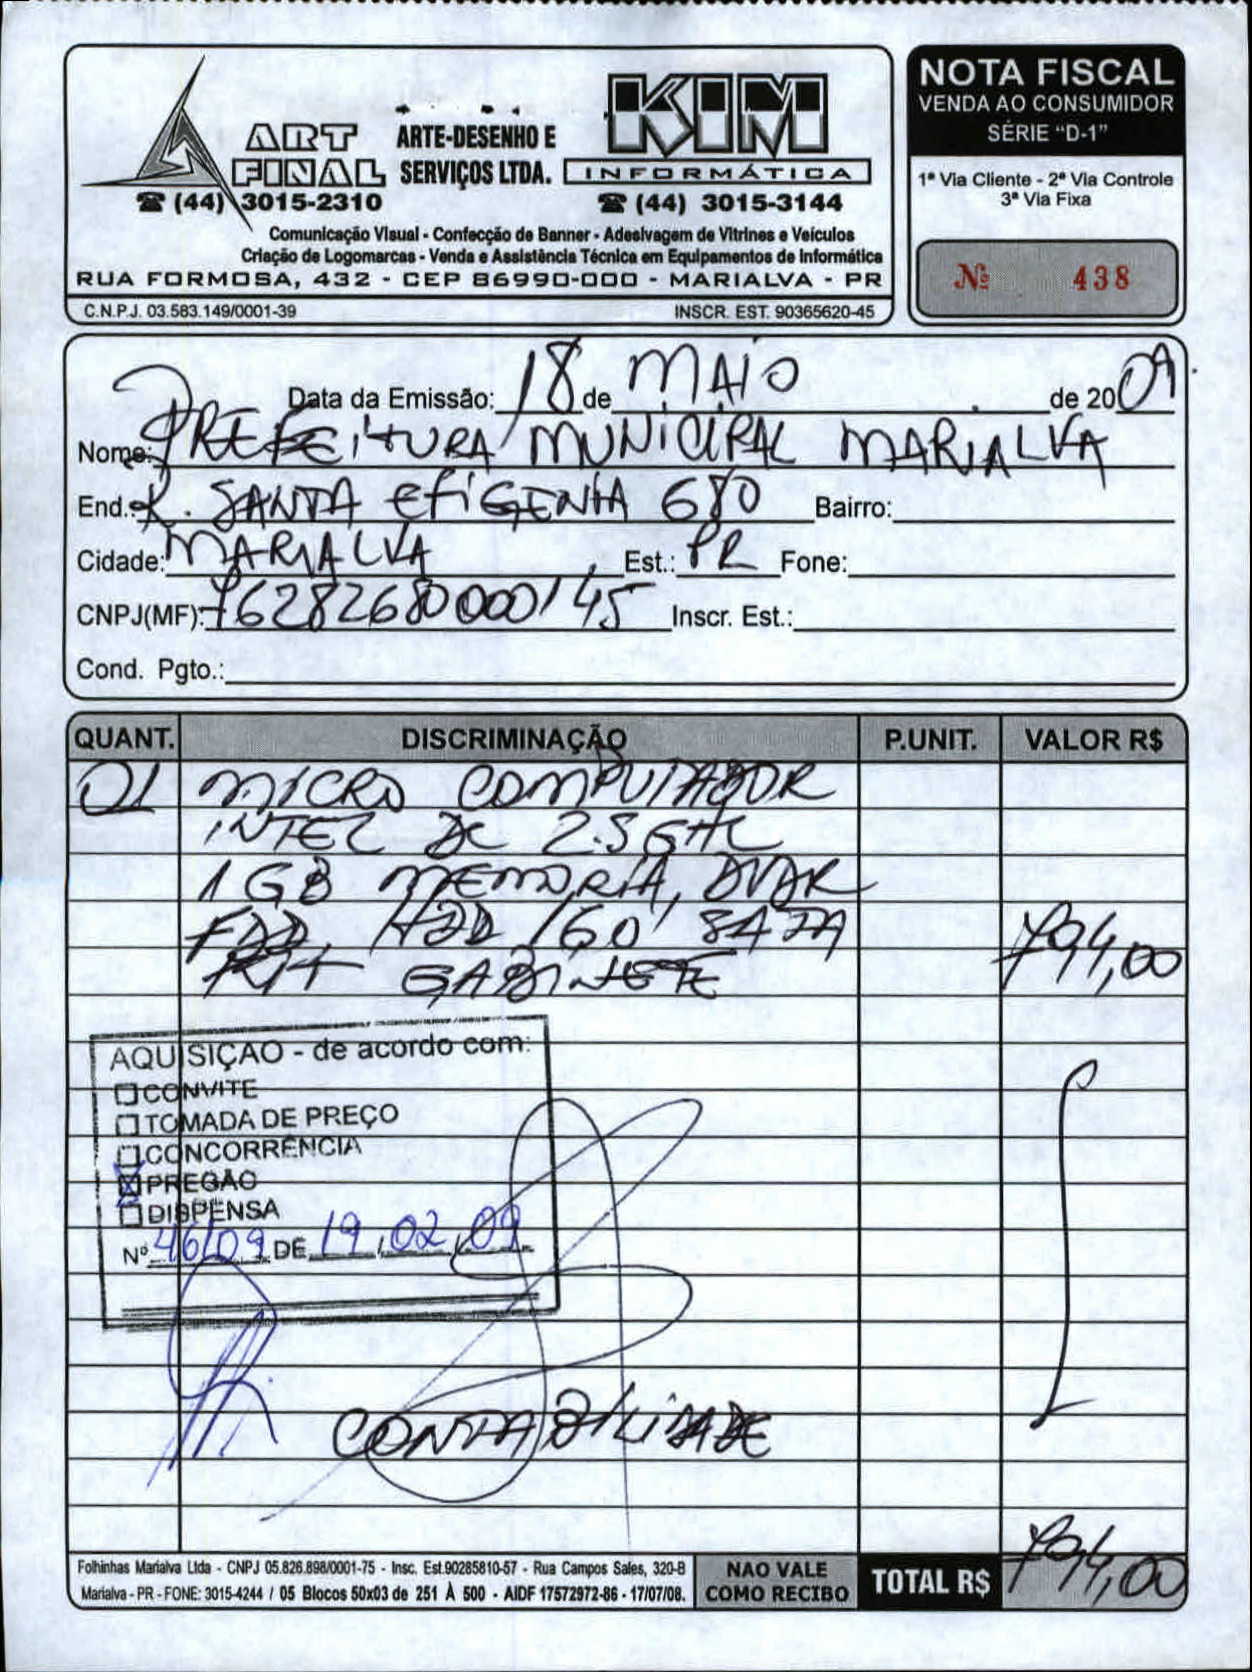 ART FINAL
ARTE-DESENHO E SERVIÇOS LTDA.
KIM INFORMÁTICA
☎ (44) 3015-2310
☎ (44) 3015-3144
Comunicação Visual - Confecção de Banner - Adesivagem de Vitrines e Veículos
Criação de Logomarcas - Venda e Assistência Técnica em Equipamentos de Informática
RUA FORMOSA, 432 - CEP 86990-000 - MARIALVA - PR
C.N.P.J. 03.583.149/0001-39 INSCR. EST. 90365620-45
NOTA FISCAL
VENDA AO CONSUMIDOR
SÉRIE "D-1"
1ª Via Cliente - 2ª Via Controle
3ª Via Fixa
Nº 438
Data da Emissão: 18 de MAIO de 2009.
Nome: PREFEITURA MUNICIPAL MARIALVA
End.: R. SANTA EFIGENIA 680 Bairro:
Cidade: MARIALVA Est.: PR Fone:
CNPJ(MF): 76282680000/45 Inscr. Est.:
Cond. Pgto.:
QUANT. DISCRIMINAÇÃO P.UNIT. VALOR R$
01 MICRO COMPUTADOR
INTEL DC 2.5 GHZ
1 GB MEMORIA, DVDR
FDD, HDD 160 SATA 794,00
KIT GABINETE
AQUISIÇAO - de acordo com:
CONVITE
TOMADA DE PREÇO
CONCORRÊNCIA
PREGÃO
DISPENSA
Nº 46/09 DE 19, 02, 09
CONTABILIDADE
Folhinhas Marialva Ltda - CNPJ 05.826.898/0001-75 - Insc. Est.90285810-57 - Rua Campos Sales, 320-B
Marialva - PR - FONE: 3015-4244 / 05 Blocos 50x03 de 251 À 500 - AIDF 17572972-86 - 17/07/08.
NAO VALE
COMO RECIBO
TOTAL R$ 794,00